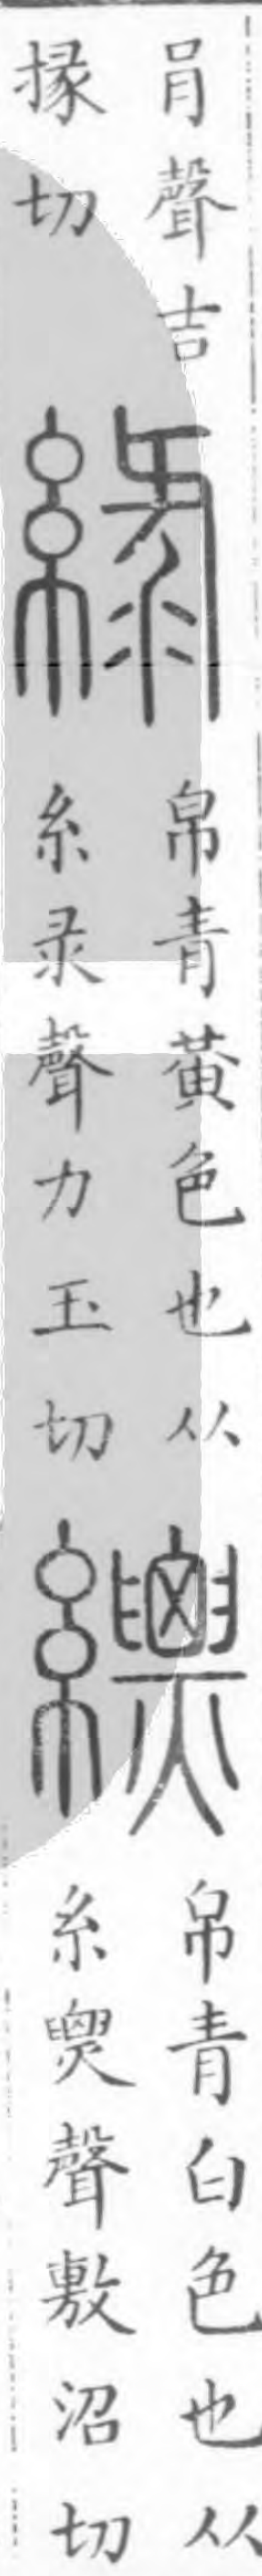 肙聲吉
掾切
綠
帛青黃色也从
糸彔聲力玉切
縹
帛青白色也从
糸㶾聲敷沼切